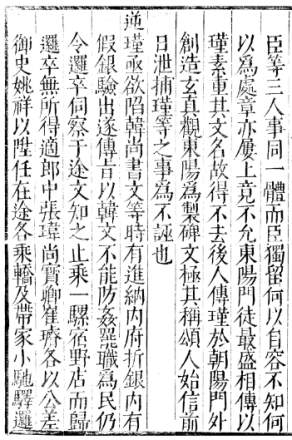 臣等三人事同一體而臣獨留何以自容不知何
以爲處章亦屢上竟不允東陽門徒最盛相傳以
瑾素重其文名故得不去後人傳瑾於朝陽門外
創造玄真觀東陽爲製碑文極其稱頌人始信前
日泄捕瑾等之事爲不誣也
逆瑾亟欲陷韓尚書文等時有進納内府折銀内有
假銀驗出遂傳旨以韓文不能防姦曠職爲民仍
令邏卒伺察于途文知之止乘一騾宿野店而歸
邏卒無所得適郎中張瑋尚寳卿崔璿各以公差
御史姚祥以陞任在途各乘轎及帶家小馳驛邏